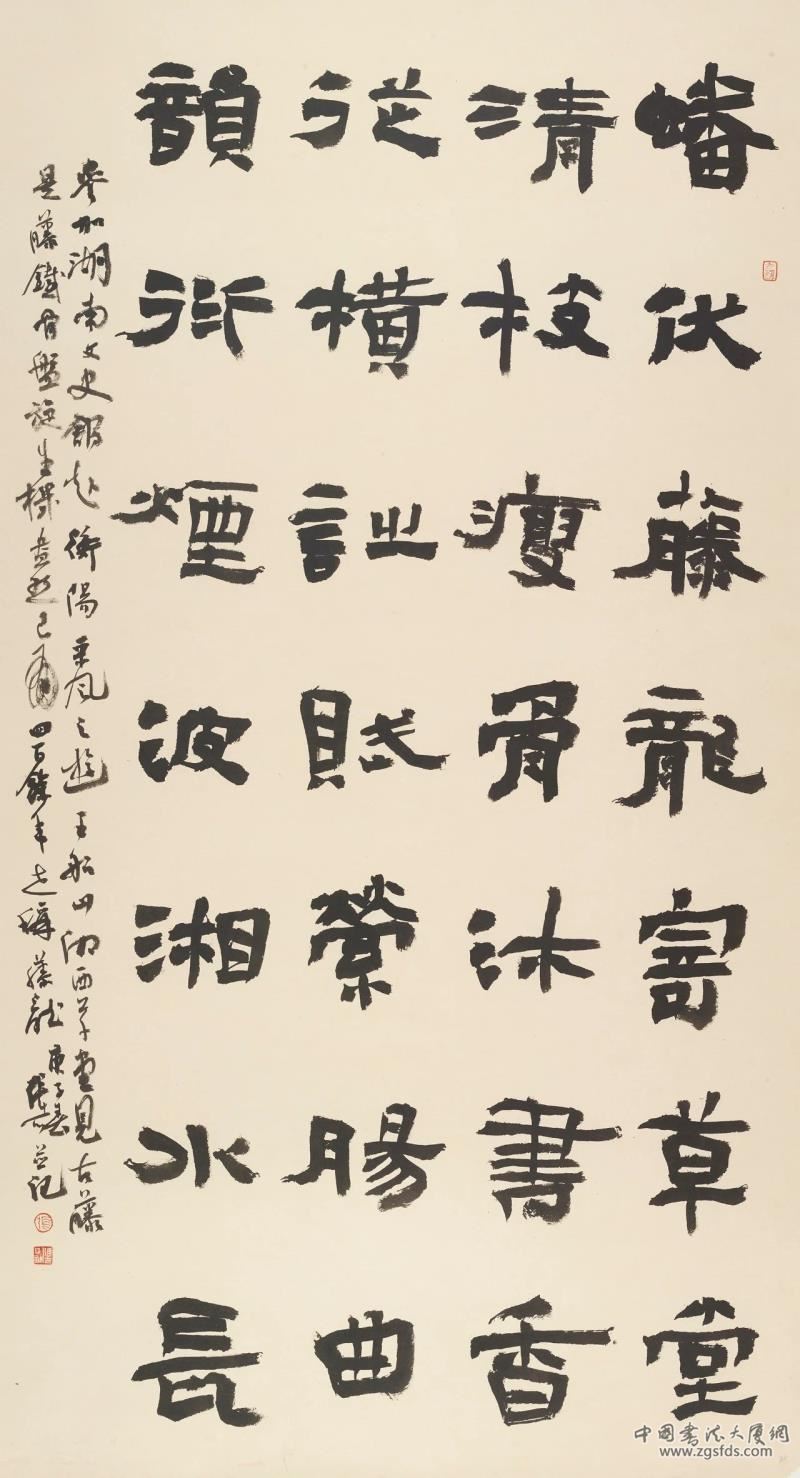 蟠伏藤龍寄草堂
清枝瘦骨沐書香
從橫詩賦縈腸曲
韻衍煙波湘水長
參加湖南文史館赴衡陽采風之遊王船山湘西草堂見古藤
是藤鐵骨盤旋生機盎然已有四百餘年世稱藤龍庚子春並記
中国書法大厦網
www.zgsfds.com